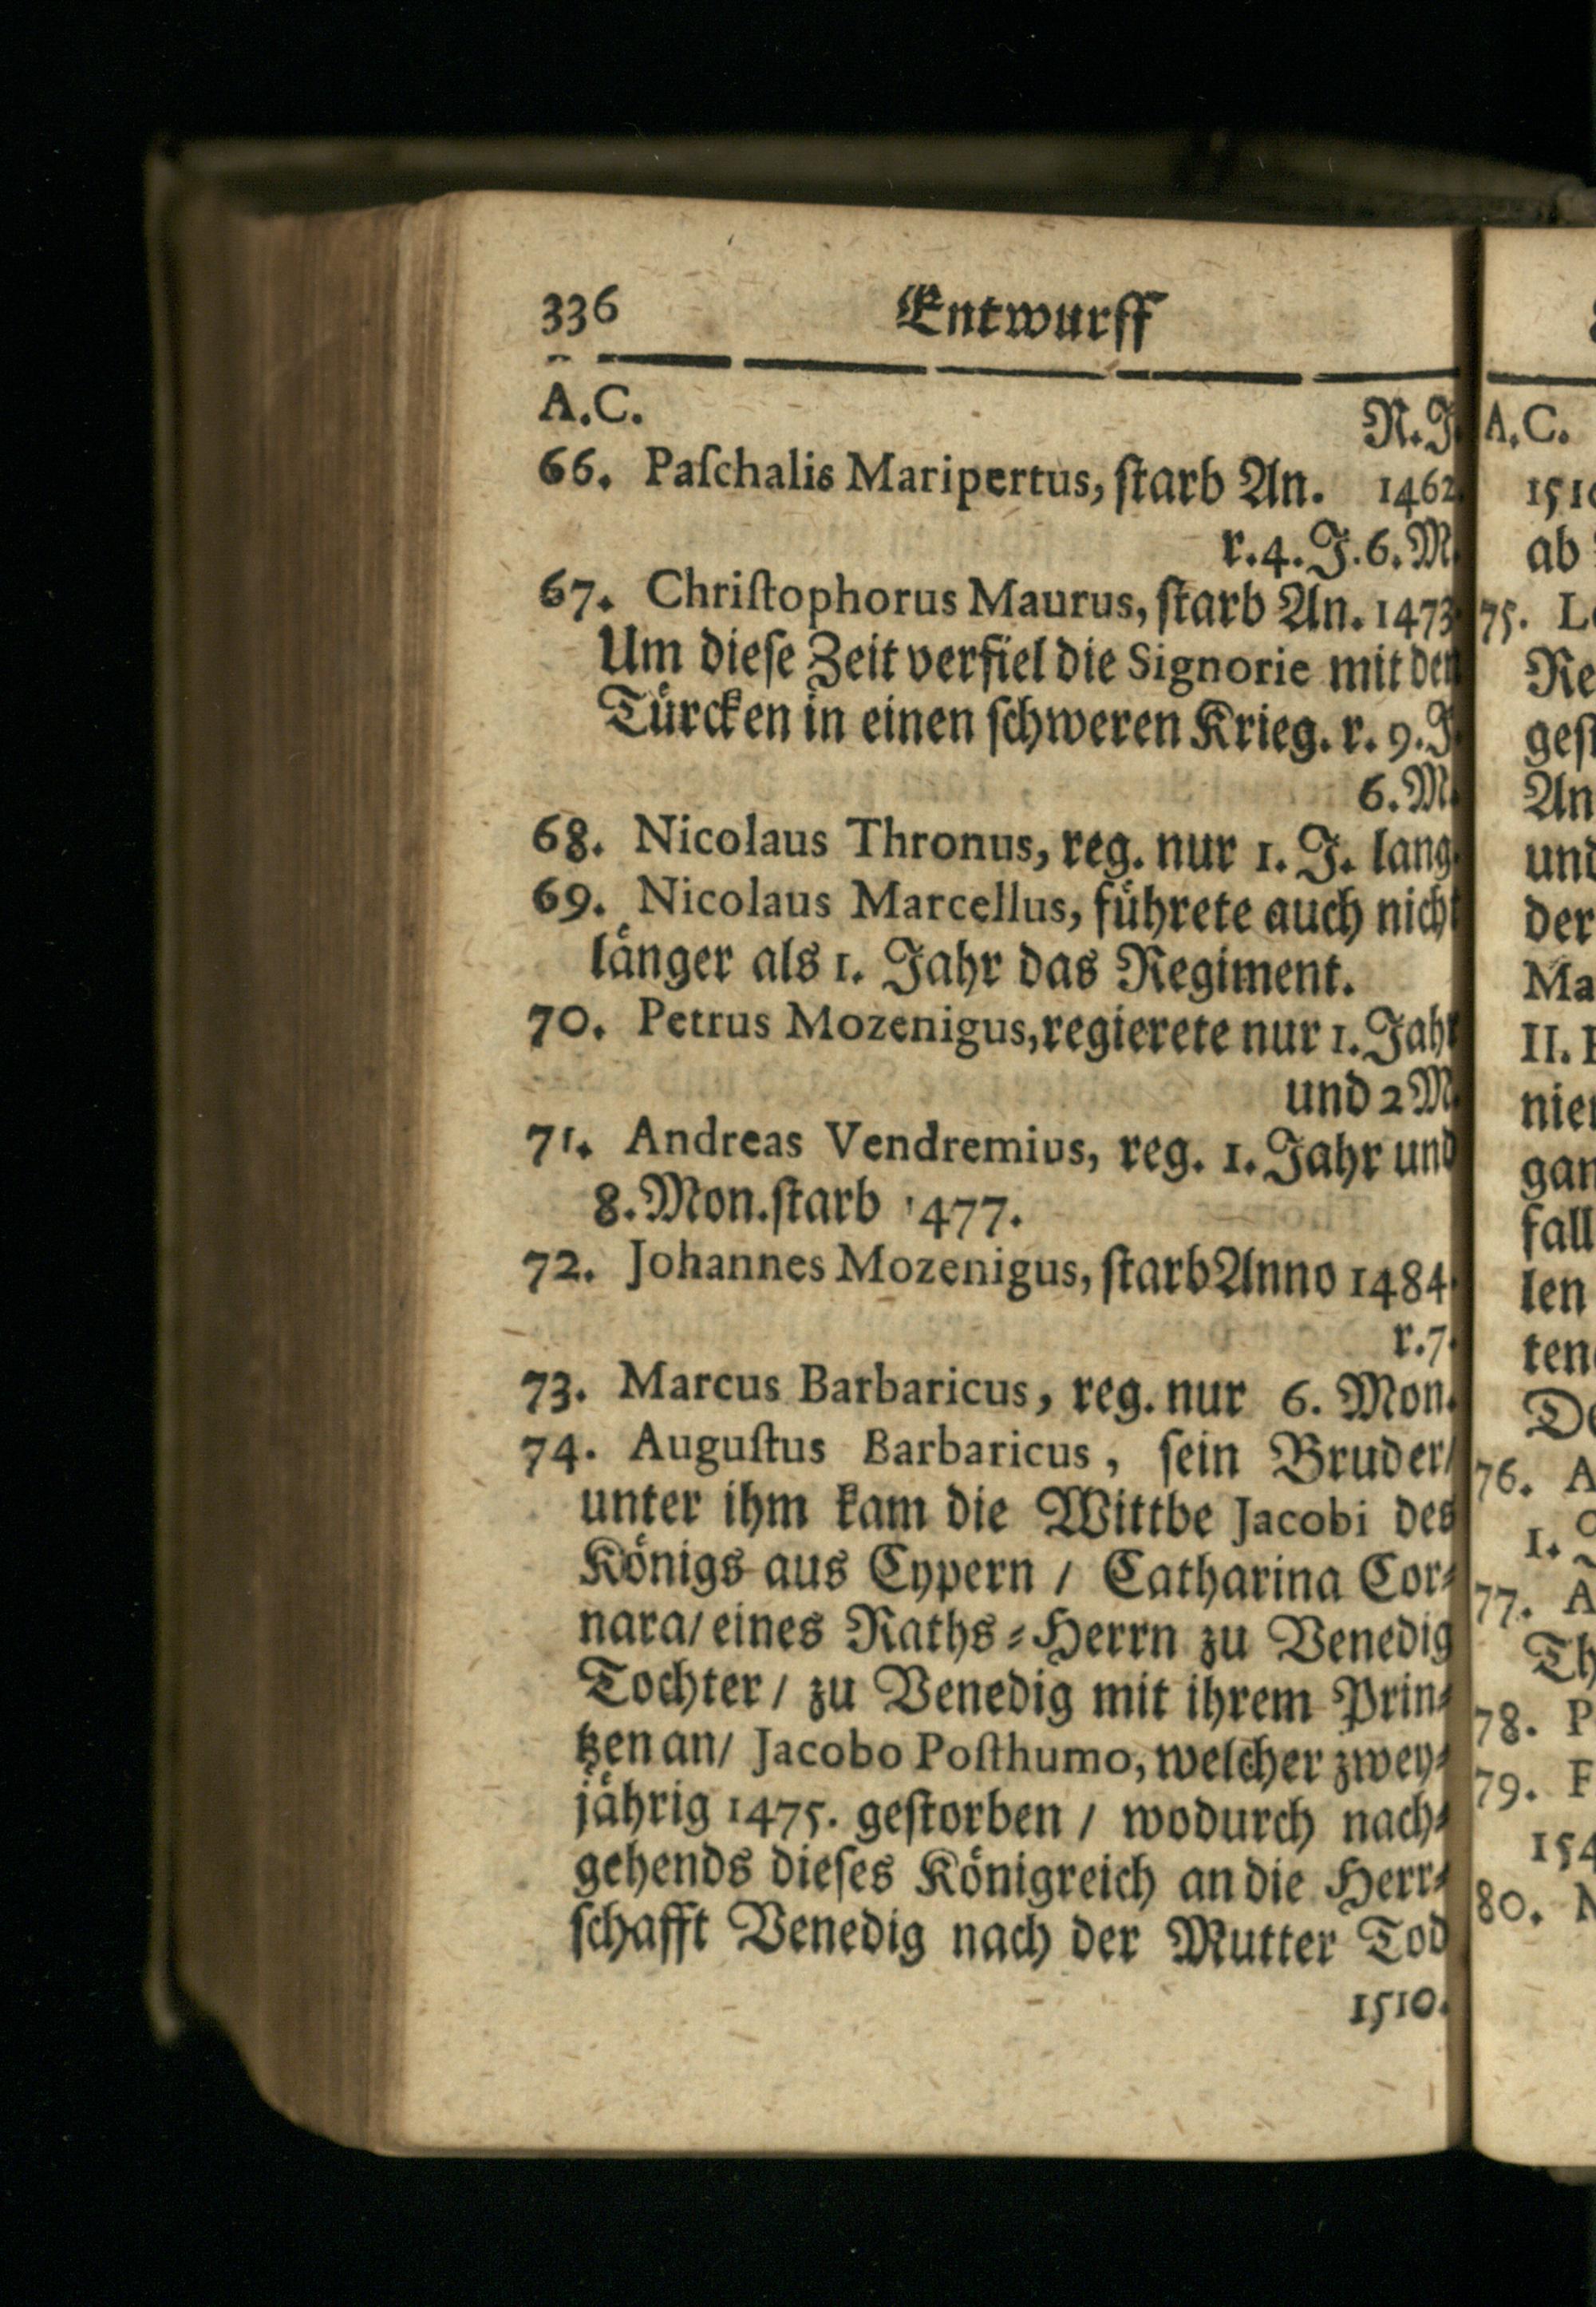 336 Entwurff
A.C. R.J.
66. Paſchalis Maripertus, ſtarb An. 1462.
r.4.J.6.M.
67. Chriſtophorus Maurus, ſtarb An. 1473.
Um dieſe Zeit verfiel die Signorie mit den
Türcken in einen ſchweren Krieg. r. 9.J.
6.M.
68. Nicolaus Thronus, reg. nur 1. J. lang.
69. Nicolaus Marcellus, führete auch nicht
länger als 1. Jahr das Regiment.
70. Petrus Mozenigus, regierete nur 1. Jahr
und 2 M.
71. Andreas Vendremius, reg. 1. Jahr und
8. Mon. ſtarb 1477.
72. Johannes Mozenigus, ſtarb Anno 1484.
r.7.
73. Marcus Barbaricus, reg. nur 6. Mon.
74. Auguſtus Barbaricus, ſein Bruder/
unter ihm kam die Wittbe Jacobi des
Königs aus Cypern / Catharina Cor⸗
nara/ eines Raths⸗Herrn zu Venedig
Tochter / zu Venedig mit ihrem Prin⸗
tzen an/ Jacobo Poſthumo, welcher zwey⸗
jährig 1475. geſtorben / wodurch nach⸗
gehends dieſes Königreich an die Herr⸗
ſchafft Venedig nach der Mutter Tod
1510.
A.C.
ab
75.
An
und
der
II.
len
76.
1.
77.
78. P
79. F
80.